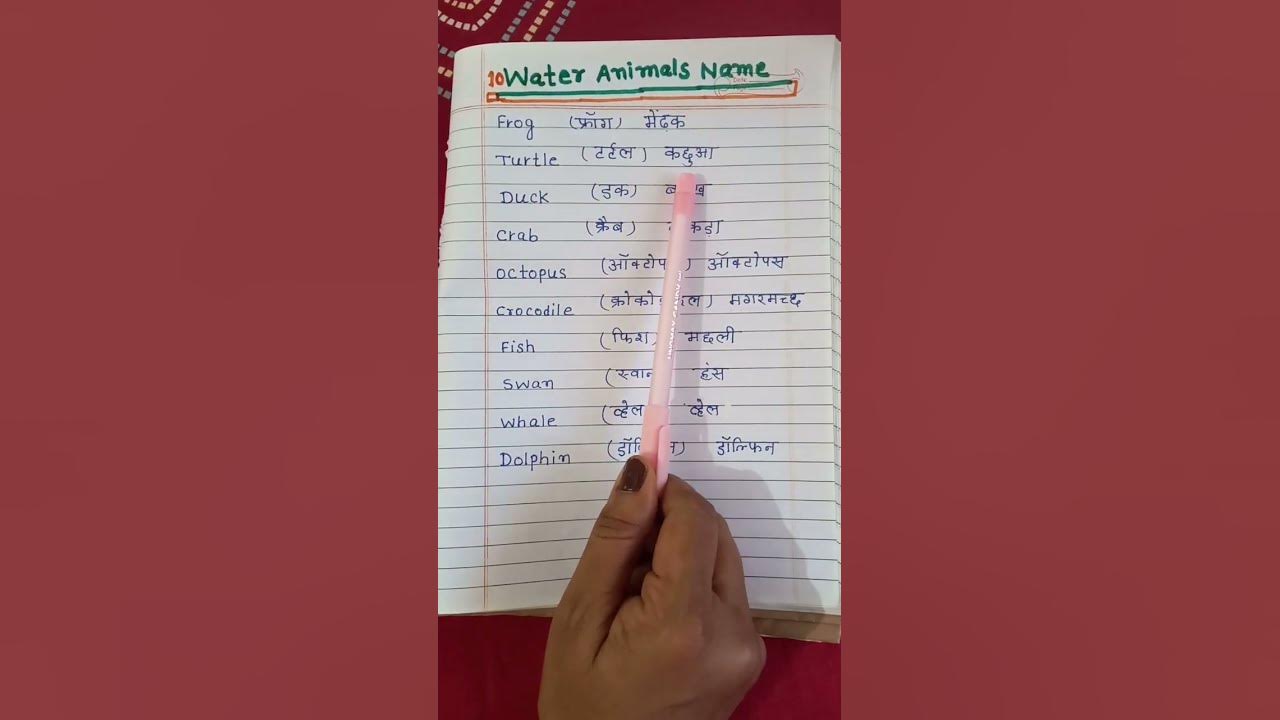 10 Water Animals Name
Frog (फ्रॉग) मेंढ़क
Turtle (टर्टल) कछुआ
Duck (डक)
Crab (क्रैब)
Octopus ऑक्टोपस
Crocodile मगरमच्छ
Fish मछली
Swan हंस
Whale व्हेल
Dolphin डॉल्फिन